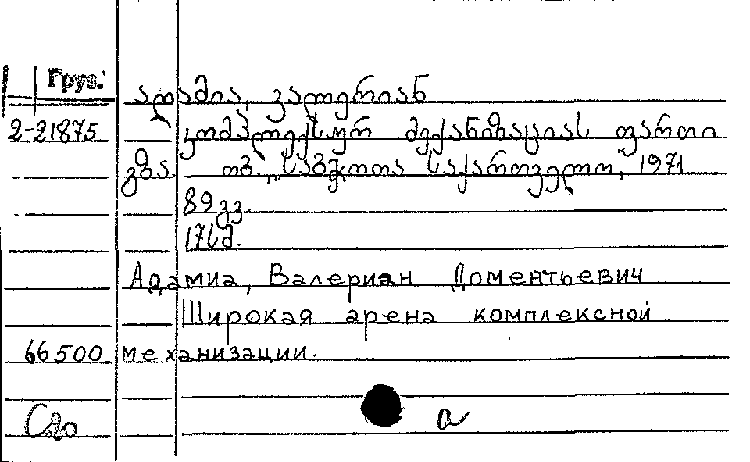 Груз.
ადამია, ვალერიან
2-21875 კომპლექსურ მექანიზაციას ფართო
გზა. თბ., „საბჭოთა საქართველო", 1971
89 გვ.
17 სმ.
Адамиа, Валериан Доментьевич
Широкая арена комплексной
66500 механизации.
а